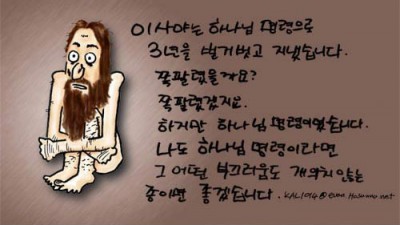 이사야는 하나님 명령으로
3년을 벌거벗고 지냈습니다.
쪽팔렸을까요?
쪽팔렸겠지요.
하지만 하나님 명령이었습니다.
나도 하나님 명령이라면
그 어떤 부끄러움도 개의치 않는
종이면 좋겠습니다.